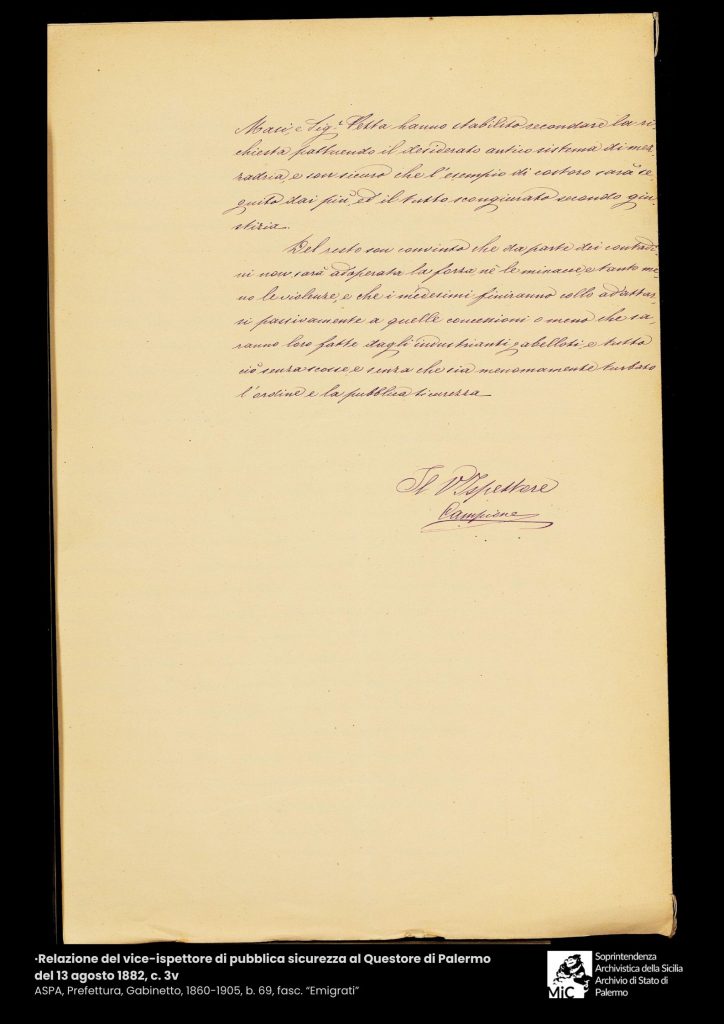 Masi, e Sig.r Vetta hanno stabilito secondare la ri-
chiesta pattuendo il desiderato antico sistema di mez-
zadria, e son sicuro che l'esempio di costoro sarà se-
guito dai più, ed il tutto scongiurato secondo giu-
stizia.
Del resto son convinto che da parte dei contadi-
ni non sarà adoperata la forza nè le minacce e tanto me-
no le violenze, e che i medesimi finiranno collo adattar-
si passivamente a quelle concessioni o meno che sa-
ranno loro fatte dagli industrianti gabelloti, e tutto
ciò senza scosse, e senza che sia menomamente turbato
l'ordine e la pubblica sicurezza
Il V. Ispettore
Campione
·Relazione del vice-ispettore di pubblica sicurezza al Questore di Palermo
del 13 agosto 1882, c. 3v
ASPA, Prefettura, Gabinetto, 1860-1905, b. 69, fasc. "Emigrati"
MiC
Soprintendenza
Archivistica della Sicilia
Archivio di Stato di
Palermo